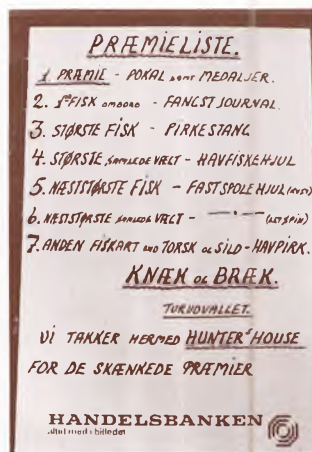 PRÆMIELISTE.
1 PRÆMIE - POKAL samt MEDALJER.
2. 1ste FISK ombord - FANGSTJOURNAL.
3. STØRSTE FISK - PIRKESTANG
4. STØRSTE samlede VÆGT - HAVFISKEHJUL
5. NÆSTSTØRSTE FISK - FASTSPOLEHJUL
6. NÆSTSTØRSTE samlede VÆGT - — " —
7. ANDEN FISKART end TORSK og SILD - HAVPIRK.
KNÆK OG BRÆK.
TURUDVALGET.
VI TAKKER HERMED HUNTER'S HOUSE
FOR DE SKÆNKEDE PRÆMIER
HANDELSBANKEN
altid med i billedet